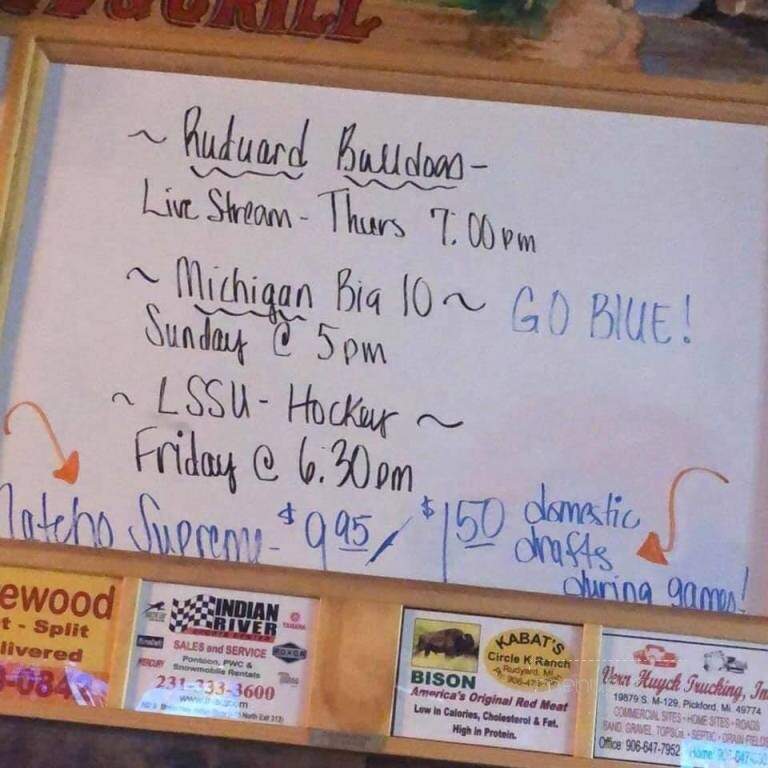 & GRILL
~ Rudyard Bulldogs -
Live Stream - Thurs 7:00pm
~ Michigan Big 10 ~ GO BLUE!
Sunday @ 5pm
~ LSSU - Hockey ~
Friday @ 6:30pm
Natcho Supreme - $9.95 / $1.50 domestic
drafts
during games!
ewood
t - Split
livered
INDIAN
RIVER
YAMAHA
SALES and SERVICE
MERCURY
Pontoon, PWC &
Snowmobile Rentals
231-333-3600
KABAT'S
Circle K Ranch
Rudyard, MI
BISON
America's Original Red Meat
Low in Calories, Cholesterol & Fat.
High in Protein.
Vern Huyck Trucking, In
19879 S. M-129, Pickford, Mi. 49774
COMMERCIAL SITES • HOME SITES • ROADS
SAND, GRAVEL, TOPSOIL • SEPTIC • DRAIN FIELDS
Office: 906-647-7952